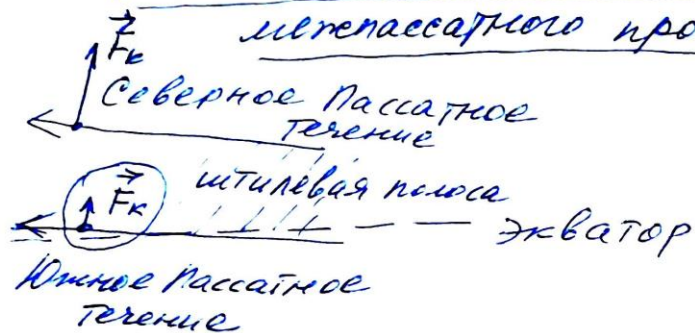 межпассатного про
F⃗к
Северное Пассатное
течение
штилевая полоса
F⃗к
экватор
Южное Пассатное
течение